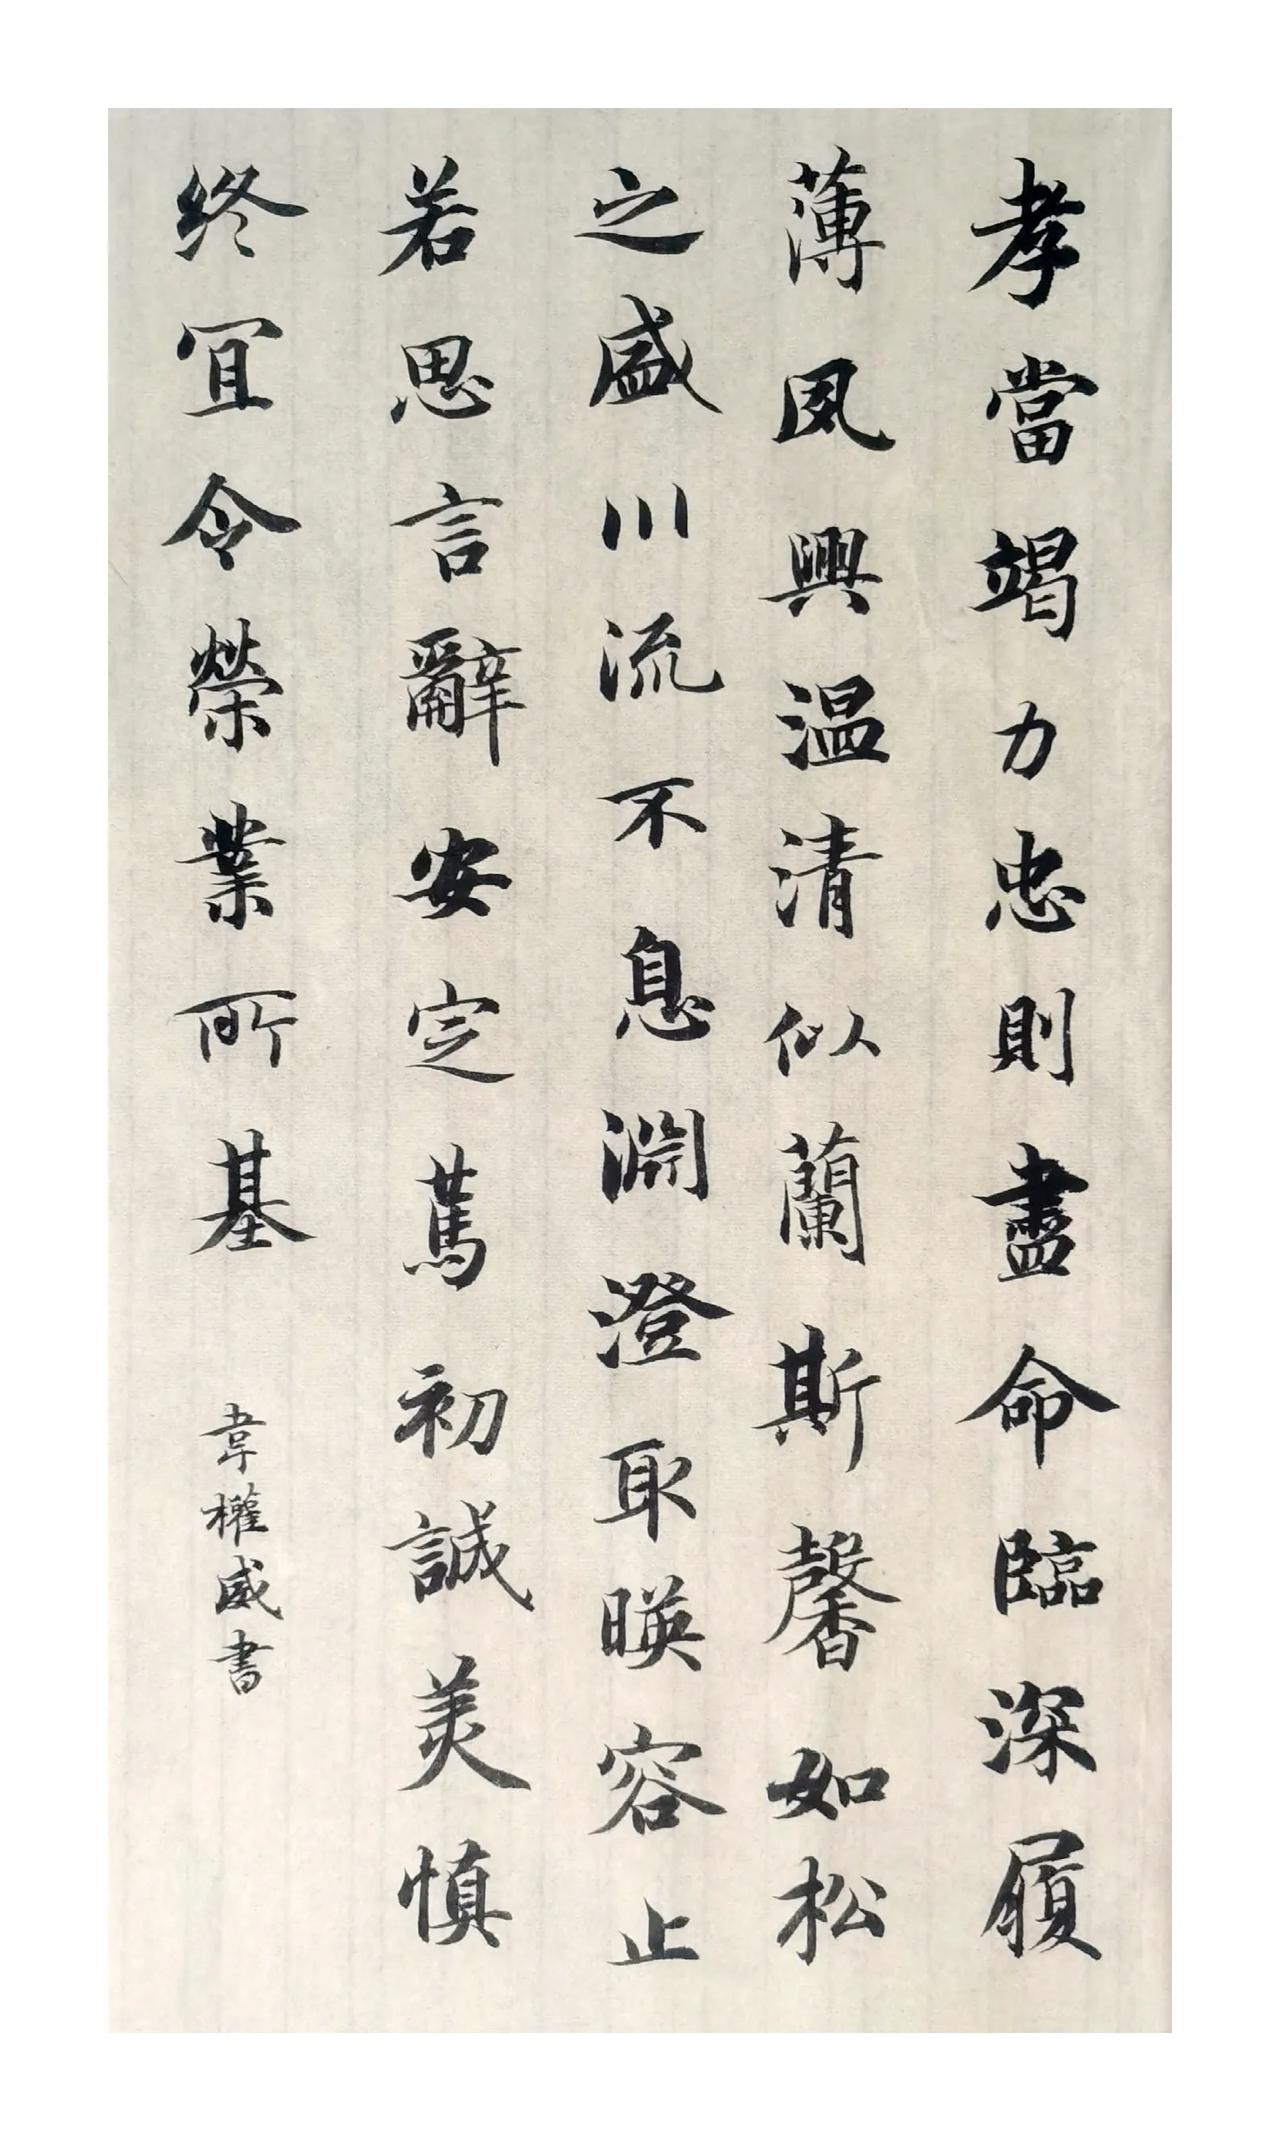 孝當竭力忠則盡命臨深履
薄夙興温清似蘭斯馨如松
之盛川流不息淵澄取暎容止
若思言辭安定篤初誠美慎
終宜令榮業所基
韋權威書